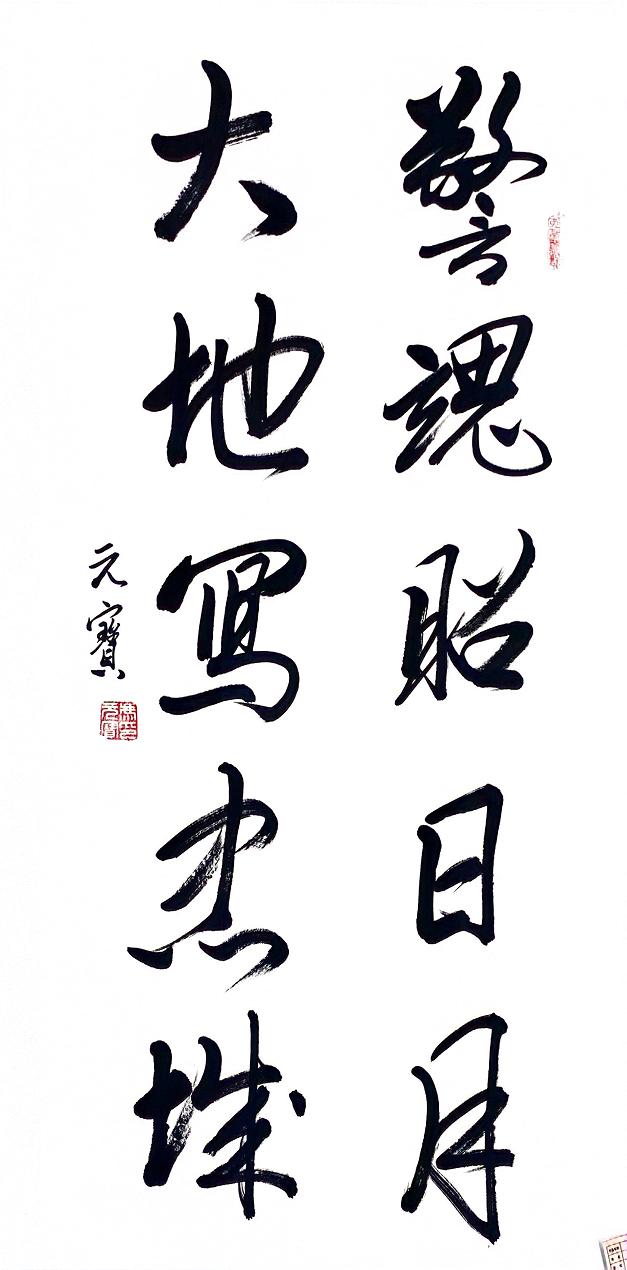 警魂昭日月
大地寫忠城
元寶